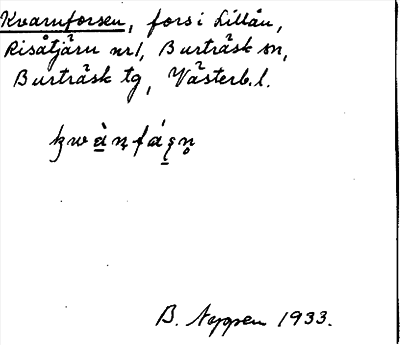 Kvarnforsen, fors i Lillån,
Risåtjärn nr1, Burträsk sn,
Burträsk tg, Västerb.l.
B. 1933.